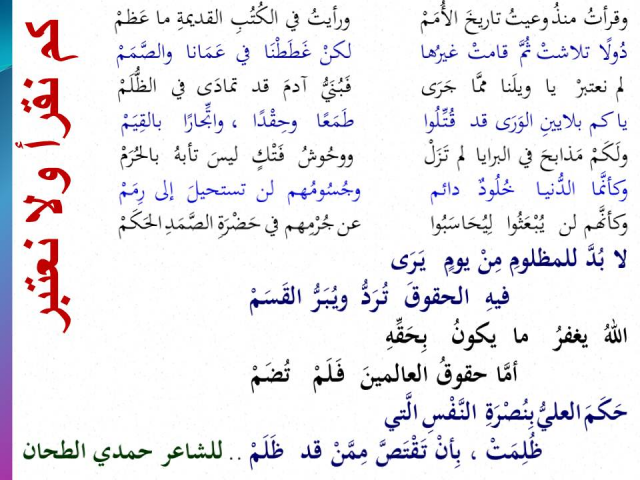 كم نقرأ ولا نعتبر
وقرأتُ منذُ وعيتُ تاريخَ الأُمَمْ ورأيتُ في الكُتُبِ القديمةِ ما عَظمْ
دُولًا تلاشتْ ثُمَّ قامتْ غيرُها لكنْ غَطَطْنَا في عَمَانا والصَّمَمْ
لم نعتبرْ يا ويلَنا ممَّا جَرَى فَبُنَيُّ آدمَ قد تمادَى في الظُّلَمْ
يا كم بلايينِ الوَرَى قد قُتِّلُوا طَمَعًا وحِقْدًا ، واتِّجارًا بالقِيَمْ
ولَكَمْ مَذابحَ في البرايا لم تَزَلْ ووحُوشُ فَتْكٍ ليسَ تأبهُ بالحُرَمْ
وكأنَّما الدُّنيا خُلُودٌ دائم وجُسُومُهم لن تستحيلَ إلى رِمَمْ
وكأنَّهم لن يُبْعَثُوا لِيُحَاسَبُوا عن جُرْمِهم في حَضْرَةِ الصَّمَدِ الحَكَمْ
لا بُدَّ للمظلومِ مِنْ يومٍ يَرَى
فيهِ الحقوقَ تُرَدُّ ويُبَرُّ القَسَمْ
اللهُ يغفرُ ما يكونُ بِحَقِّهِ
أمَّا حقوقُ العالمينَ فَلَمْ تُضَمْ
حَكَمَ العليُّ بِنُصْرَةِ النَّفْسِ الَّتي
ظُلِمَتْ ، بِأنْ تَقْتَصَّ مِمَّنْ قد ظَلَمْ .. للشاعر حمدي الطحان